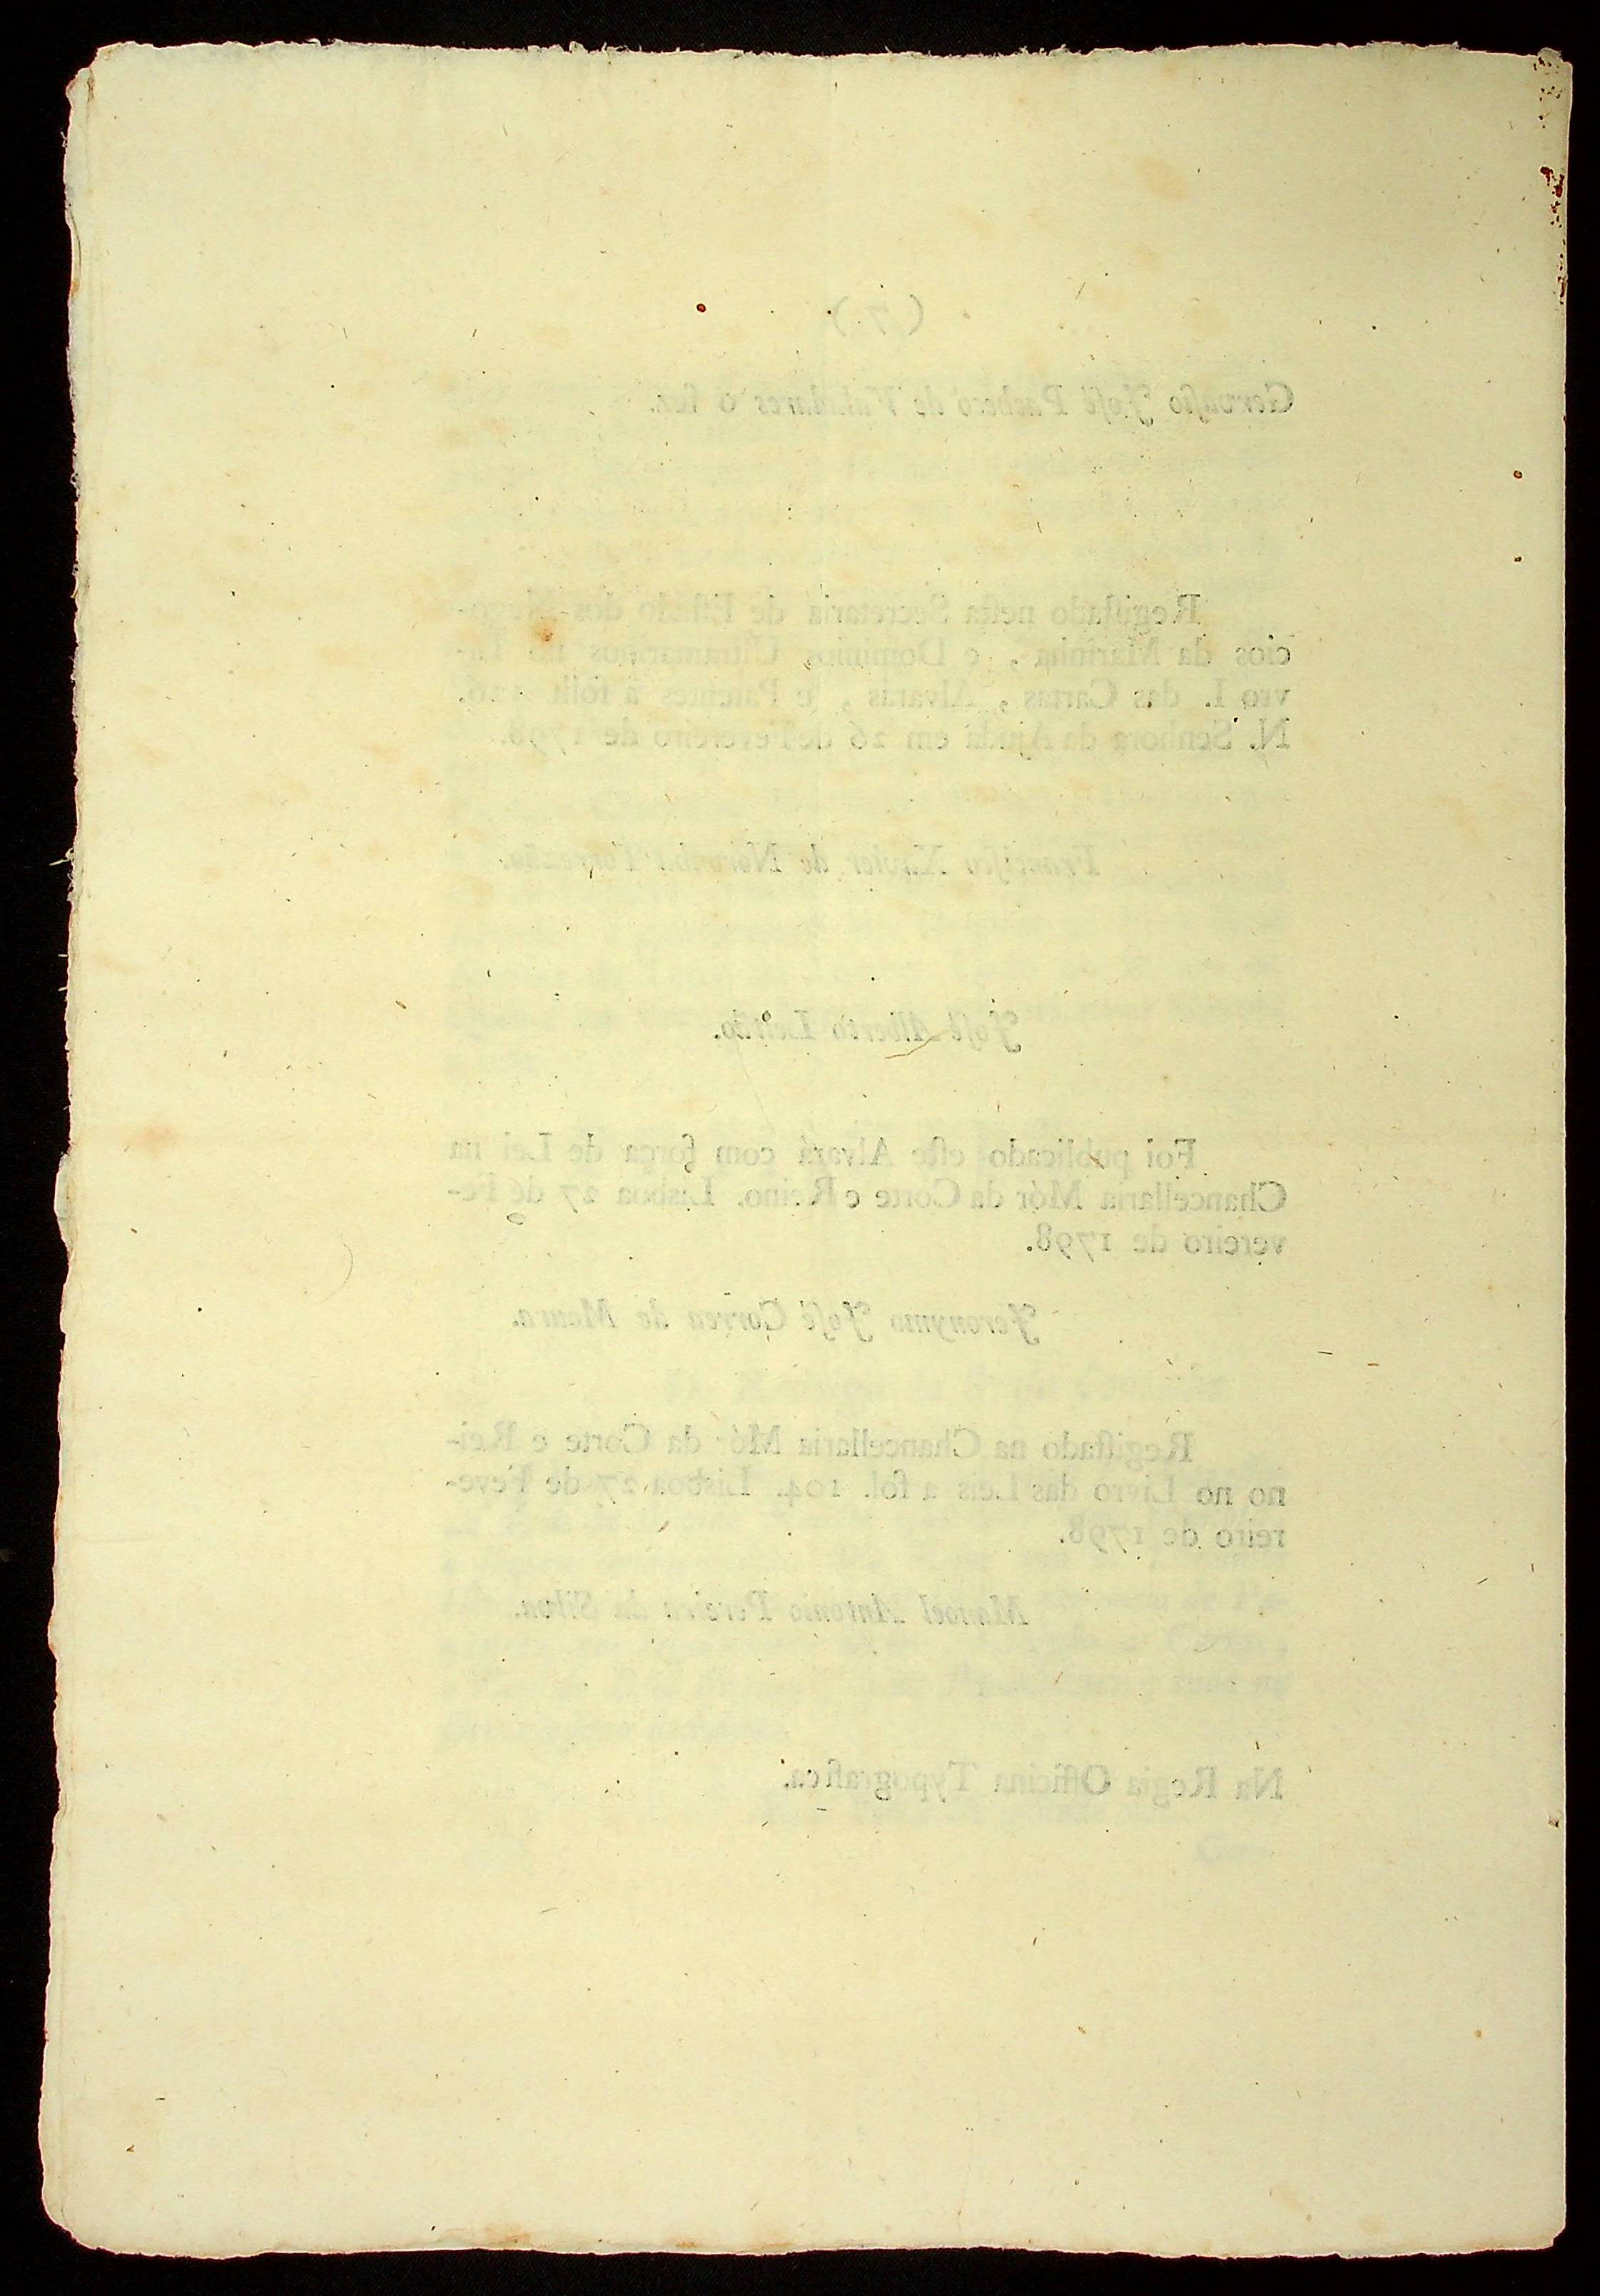 ( 7 )
Gervaſio Joſé Pacheco de Valadares o fez.
Regiſtado neſta Secretaria de Eſtado dos Nego-
cios da Marinha, e Dominios Ultramarinos no Li-
vro I. das Cartas, Alvarás, e Patentes a folh.
N. Senhora da Ajuda em 26 de Fevereiro de 1798.
Franciſco Xavier de Noronha Torrezão.
Joſé Alberto Leitão.
Foi publicado eſte Alvará com força de Lei na
Chancellaria Mór da Corte e Reino. Lisboa 27 de Fe-
vereiro de 1798.
Jeronymo Joſé Correa de Moura.
Regiſtado na Chancellaria Mór da Corte e Rei-
no no Livro das Leis a fol. 104. Lisboa 27 de Feve-
reiro de 1798.
Manoel Antonio Pereira da Silva.
Na Regia Officina Typografica.